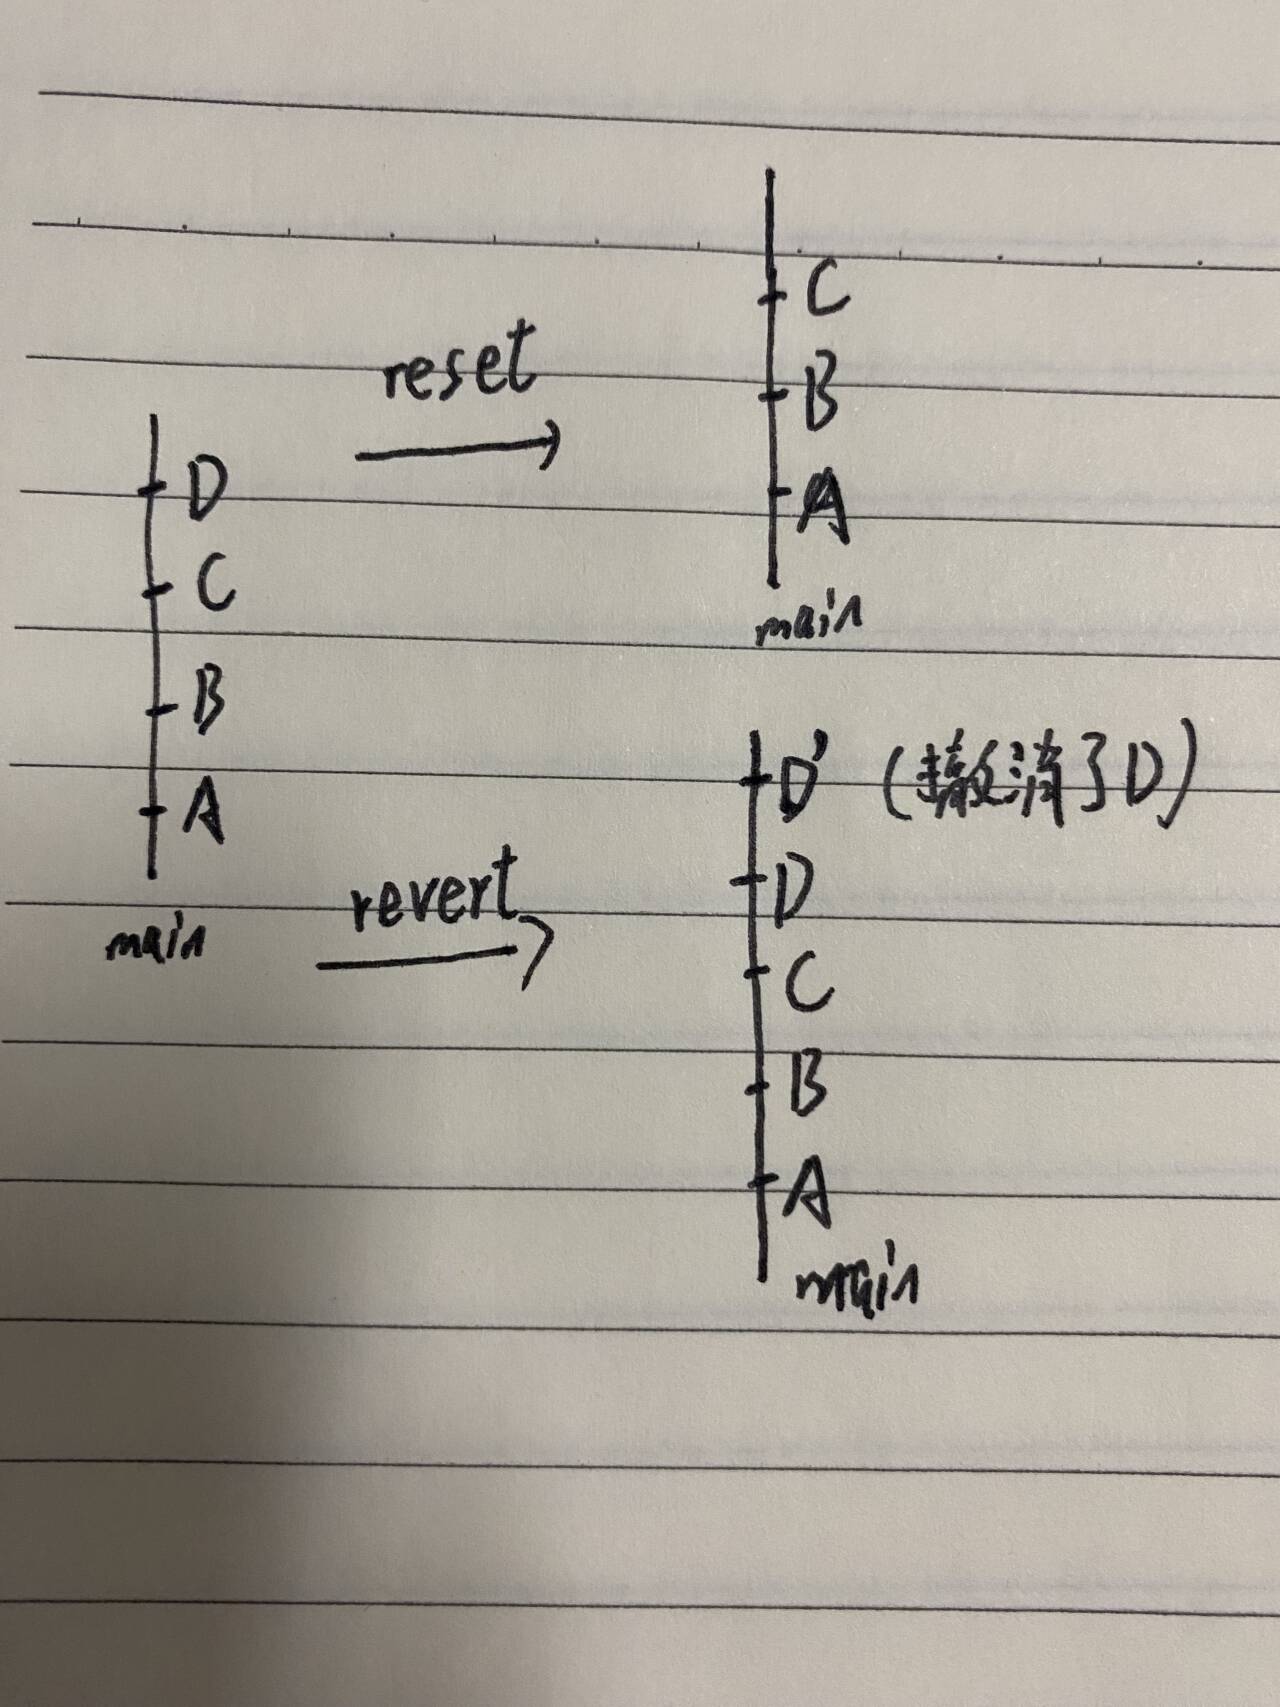 D
C
B
A
main
reset
C
B
A
main
revert
D' (撤消了D)
D
C
B
A
main